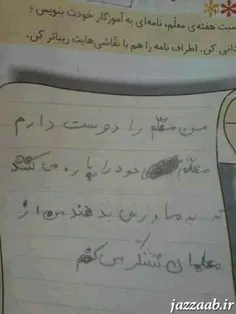 سبت هفته‌ی معلّم، نامه‌ای به آموزگار خودت بنویس و
دانی کن. اطراف نامه را هم با نقّاشی‌هایت زیباتر کن.
من معلّم را دوست دارم
معلّم خود را پاره می کنند
که به ما درس بدهند من از
معلمان تشکر می کنم
jazzaab.ir